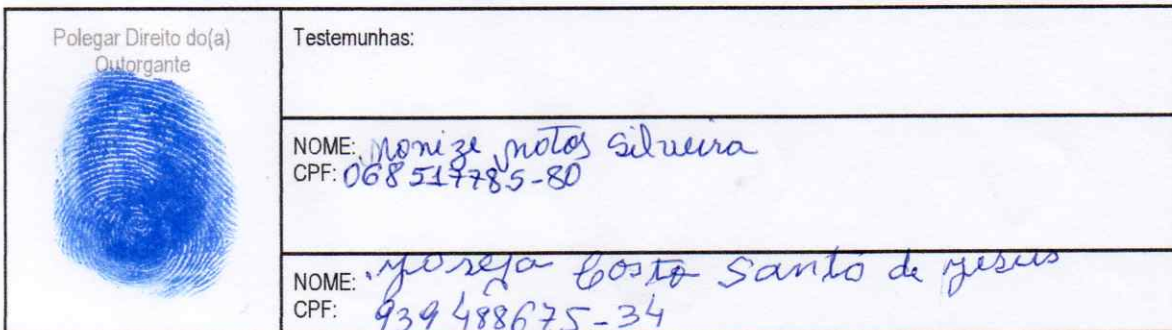 Polegar Direito do(a)
Outorgante
Testemunhas:
NOME: Monize Matos Silveira
CPF: 068517785-80
NOME: Costa Santo de Jesus
CPF: 939488675-34